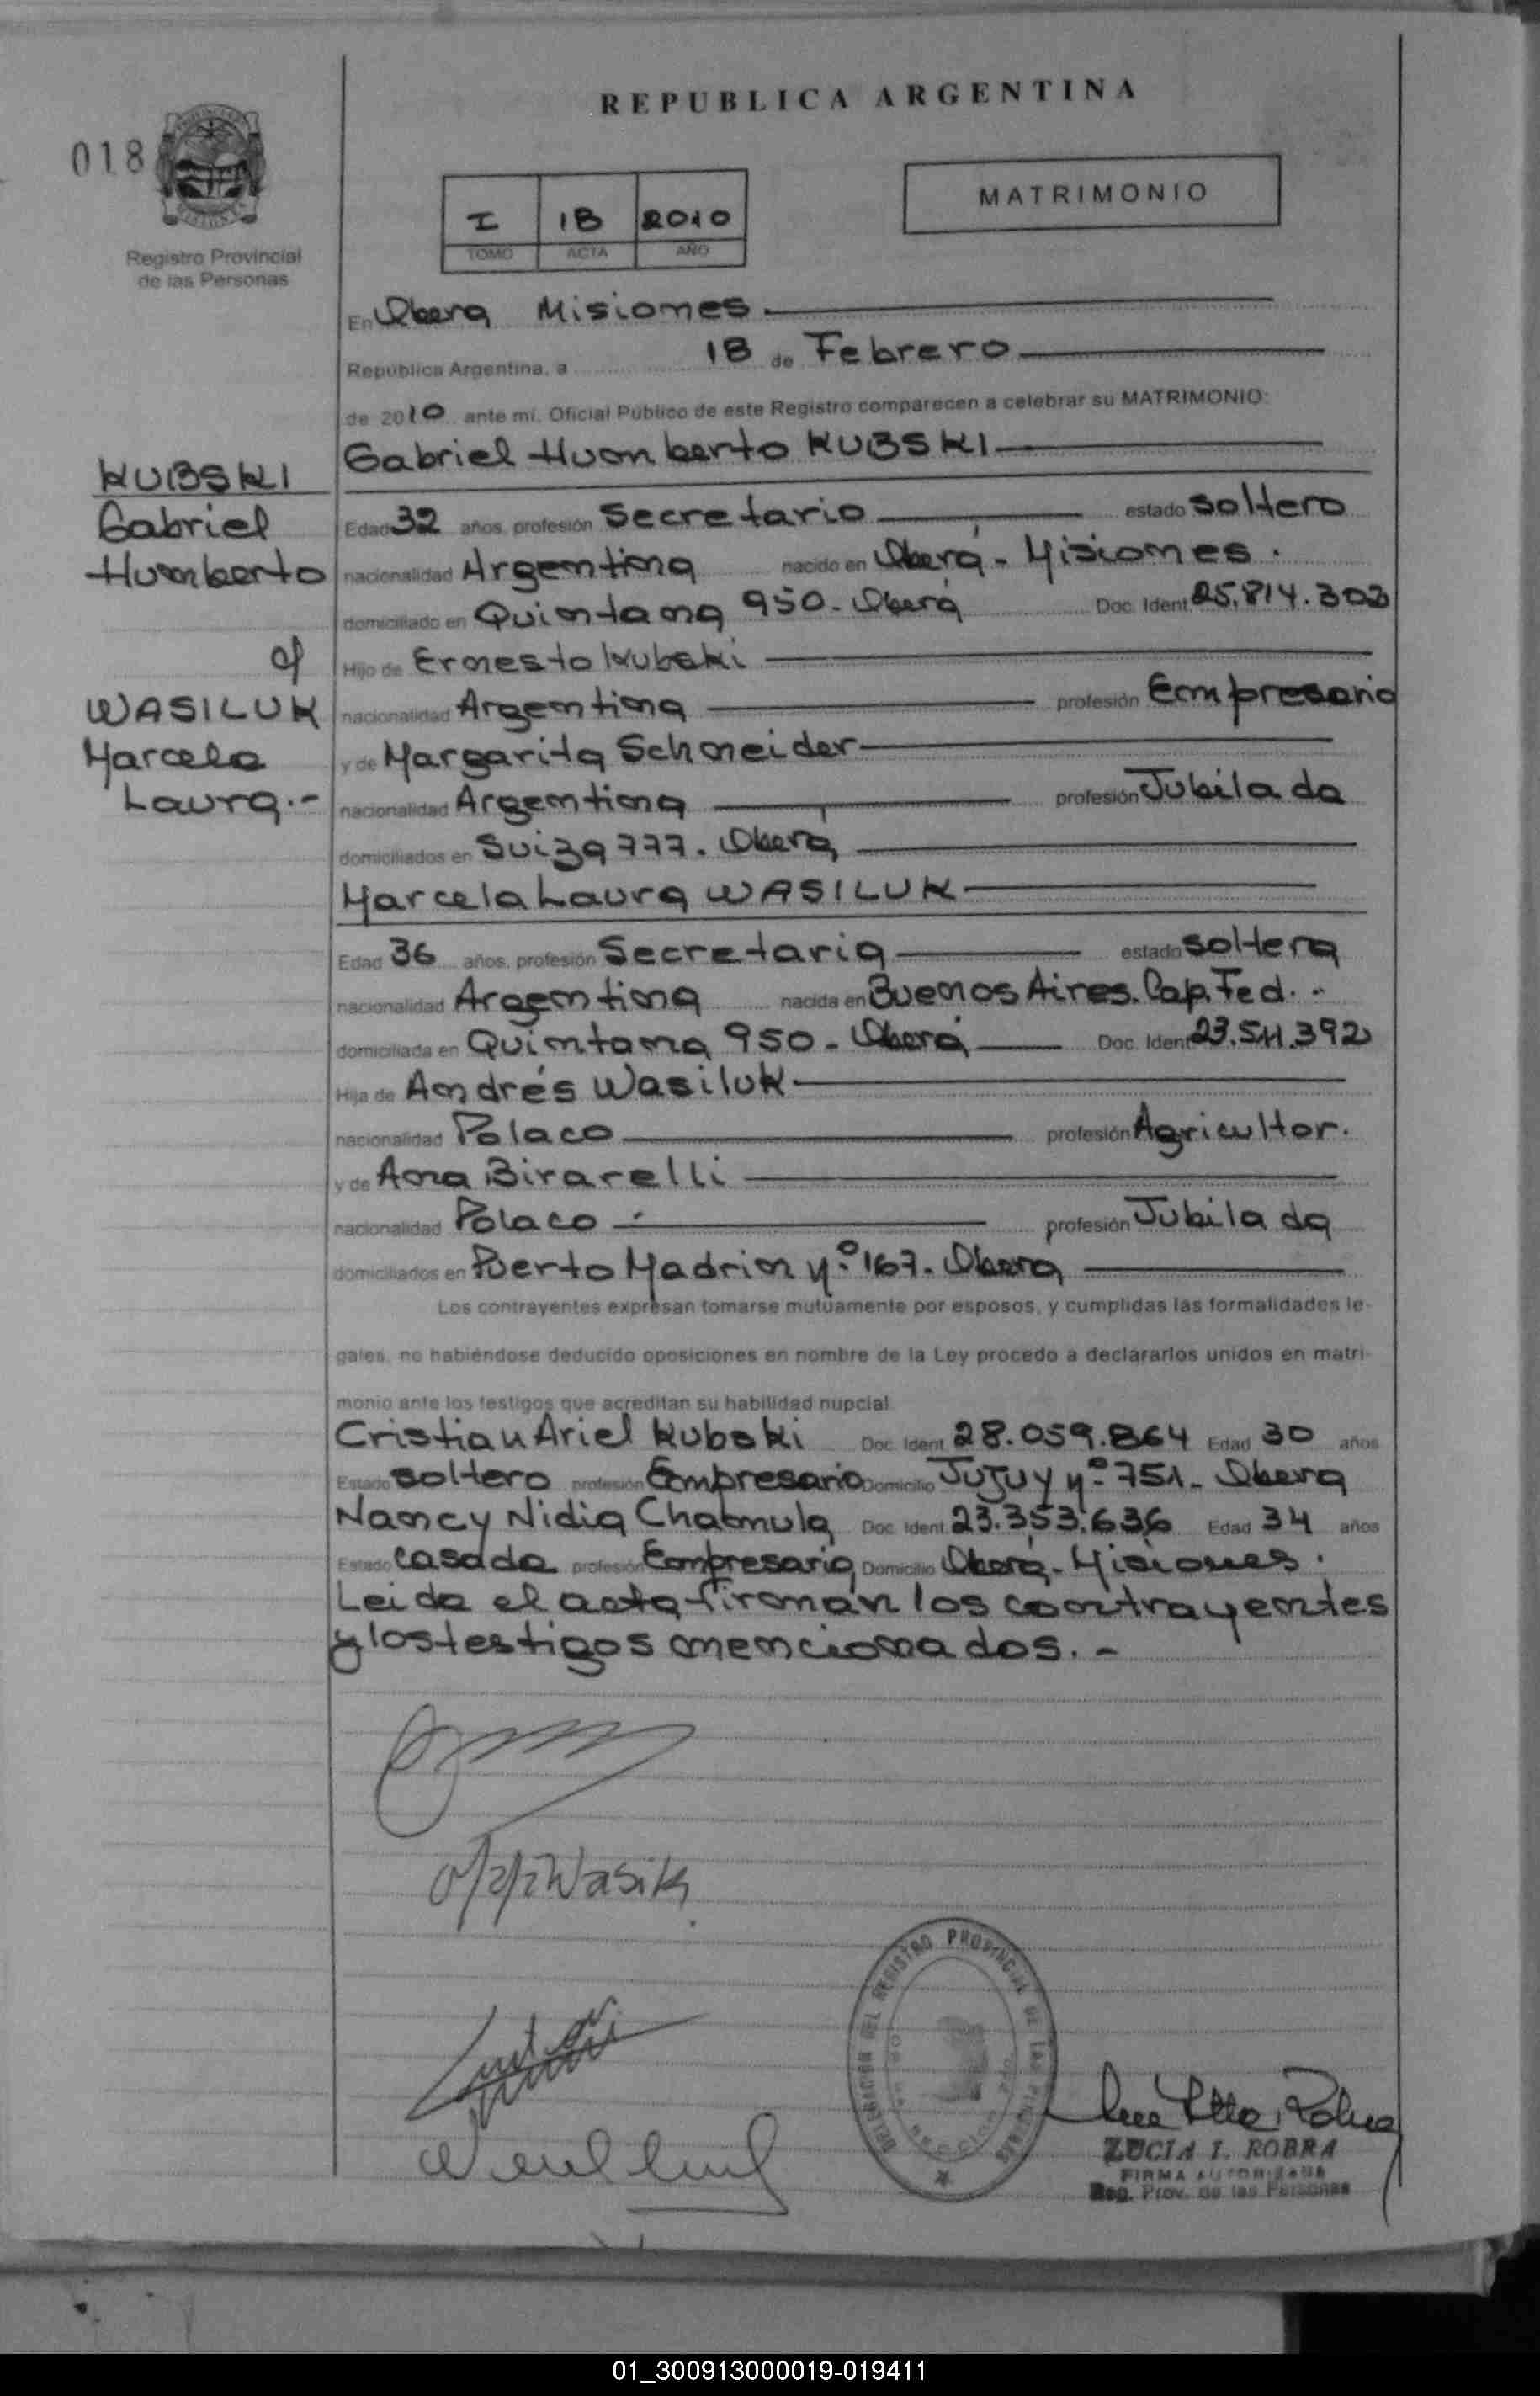 REPUBLICA ARGENTINA
018
MATRIMONIO
I 18 2010
TOMO ACTA AÑO
Registro Provincial
de las Personas
En Oberá Misiones.
República Argentina, a 18 de Febrero
de 2010 ante mí, Oficial Público de este Registro comparecen a celebrar su MATRIMONIO:
Gabriel Humberto KUBSKI
KUBSKI
Gabriel
Humberto
c/
WASILUK
Marcela
Laura.-
Edad 32 años, profesión Secretario estado soltero
nacionalidad Argentina nacido en Oberá - Misiones.
domiciliado en Quintana 950 - Oberá Doc. Ident 25.814.303
Hijo de Ernesto Kubski
nacionalidad Argentina profesión Empresario
y de Margarita Schneider
nacionalidad Argentina profesión Jubilada
domiciliados en Suiza 777. Oberá
Marcela Laura WASILUK
Edad 36 años, profesión Secretaria estado soltera
nacionalidad Argentina nacida en Buenos Aires. Cap. Fed. -
domiciliada en Quintana 950 - Oberá Doc. Ident 23.511.392
Hija de Andrés Wasiluk
nacionalidad Polaco profesión Agricultor.
y de Ana Birarelli
nacionalidad Polaco profesión Jubilada
domiciliados en Puerto Madrin Nº 167. Oberá
Los contrayentes expresan tomarse mutuamente por esposos, y cumplidas las formalidades le-
gales, no habiéndose deducido oposiciones en nombre de la Ley procedo a declararlos unidos en matri-
monio ante los testigos que acreditan su habilidad nupcial
Cristian Ariel Kubski Doc. Ident. 28.059.864 Edad 30 años
Estado soltero profesión Empresario Domicilio Jujuy Nº 751 - Oberá
Nancy Nidia Chamula Doc. Ident. 23.353.636 Edad 34 años
Estado casada profesión Empresaria Domicilio Oberá - Misiones.
Leida el acta firman los contrayentes
y los testigos mencionados. -
DELEGACION DEL REGISTRO PROVINCIAL DE LAS PERSONAS
LUCIA I. ROBRA
FIRMA AUTORIZADA
Reg. Prov. de las Personas
01_300913000019-019411